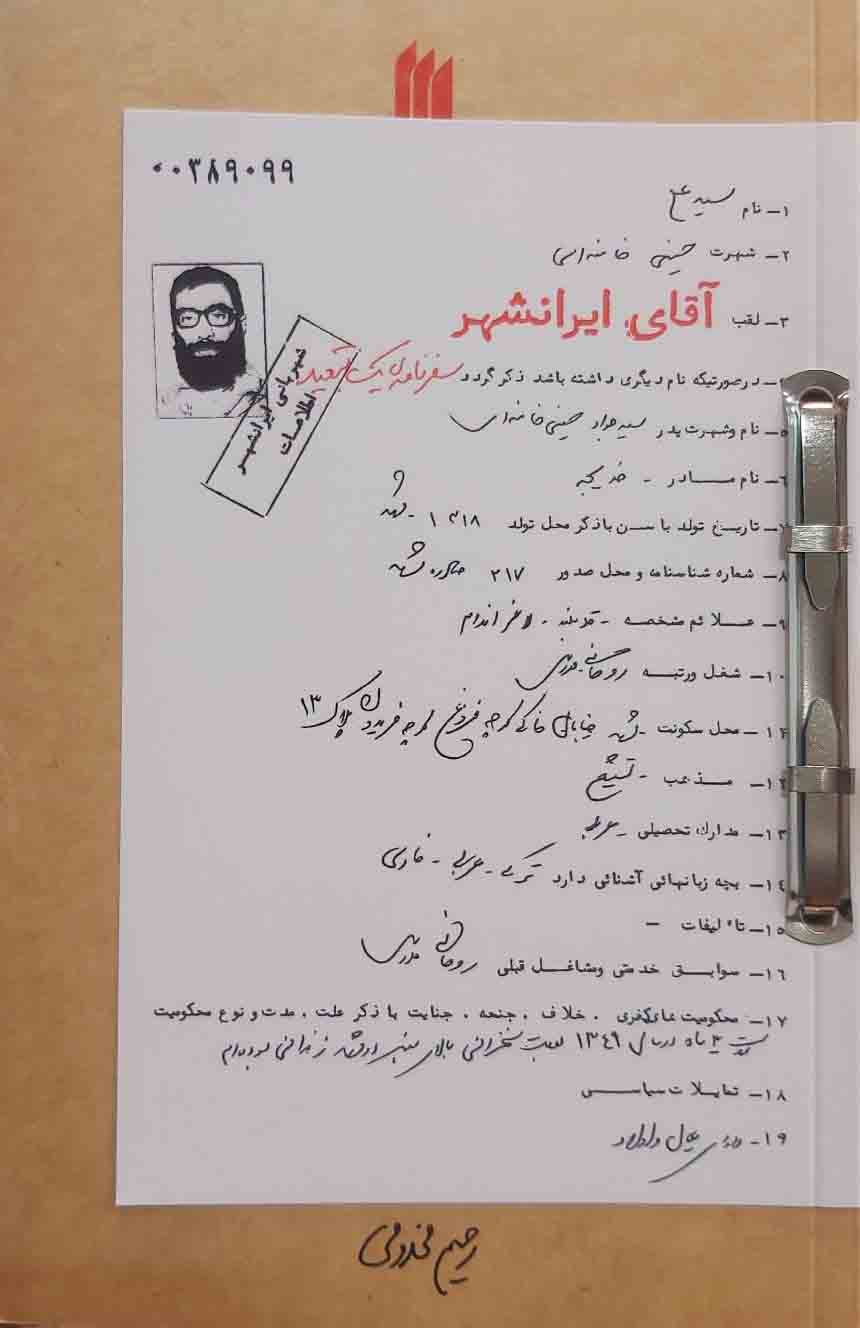 ۰۰۳۸۹۰۹۹
۱- نام سید علی
۲- شهرت حسینی خامنه‌ای
۳- لقب آقای ایرانشهر
در صورتیکه نام دیگری داشته باشد ذکر گردد سفرنامه‌ی یک تبعید
شهربانی ایرانشهر
اطلاعات
۵- نام و شهرت پدر سید جواد حسینی خامنه‌ای
۶- نام مادر - خدیجه
۷- تاریخ تولد یا سن با ذکر محل تولد ۱۳۱۸ - مشهد
۸- شماره شناسنامه و محل صدور ۲۱۷ صادره مشهد
۹- علائم مشخصه - قد بلند - لاغر اندام
۱۰- شغل و رتبه روحانی - مدرس
۱۲- محل سکونت - مشهد خیابان خاکی کوچه فروغ کوچه فریدون پلاک ۱۳
۱۲- مذهب - تشیع
۱۳- مدارک تحصیلی -
۱۴- بچه زبانهائی آشنائی دارد ترکی - عربی - فارسی
۱۵- تاءلیفات -
۱۶- سوابق خدمتی و مشاغل قبلی روحانی مدرس
۱۷- محکومیت های کیفری ، خلاف ، جنحه ، جنایت با ذکر علت ، مدت و نوع محکومیت
ماه در سال ۱۳۴۹ بعلت سخنرانی بالای منبر در مشهد زندانی بوده‌ام
۱۸- تمایلات سیاسی
۱۹-
رحیم مخدومی